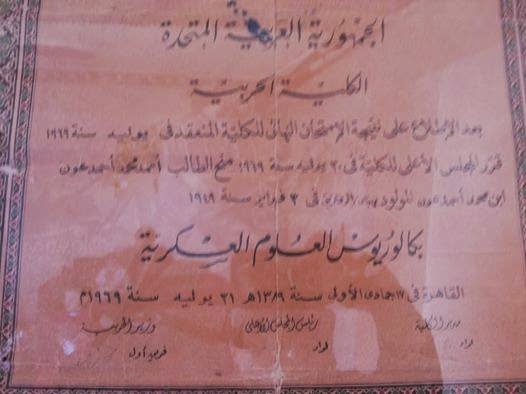 الجمهورية العربية المتحدة
الكلية الحربية
بعد الإطلاع على نتيجة الإمتحان النهائى للكلية المنعقد فى يوليه سنة ١٩٦٩
قرر المجلس الأعلى للكلية فى ٢٠ يوليه سنة ١٩٦٩ منح الطالب أحمد محمد أحمد عون
ابن محمد أحمد عون المولود فى ٣ فبراير سنة ١٩٤٩
بكالوريوس العلوم العسكرية
القاهرة فى ١٧ جمادى الأولى سنة ١٣٨٩ھ ٢١ يوليه سنة ١٩٦٩م
مدير الكلية رئيس المجلس الأعلى وزير الحربية
لواء لواء فريق أول